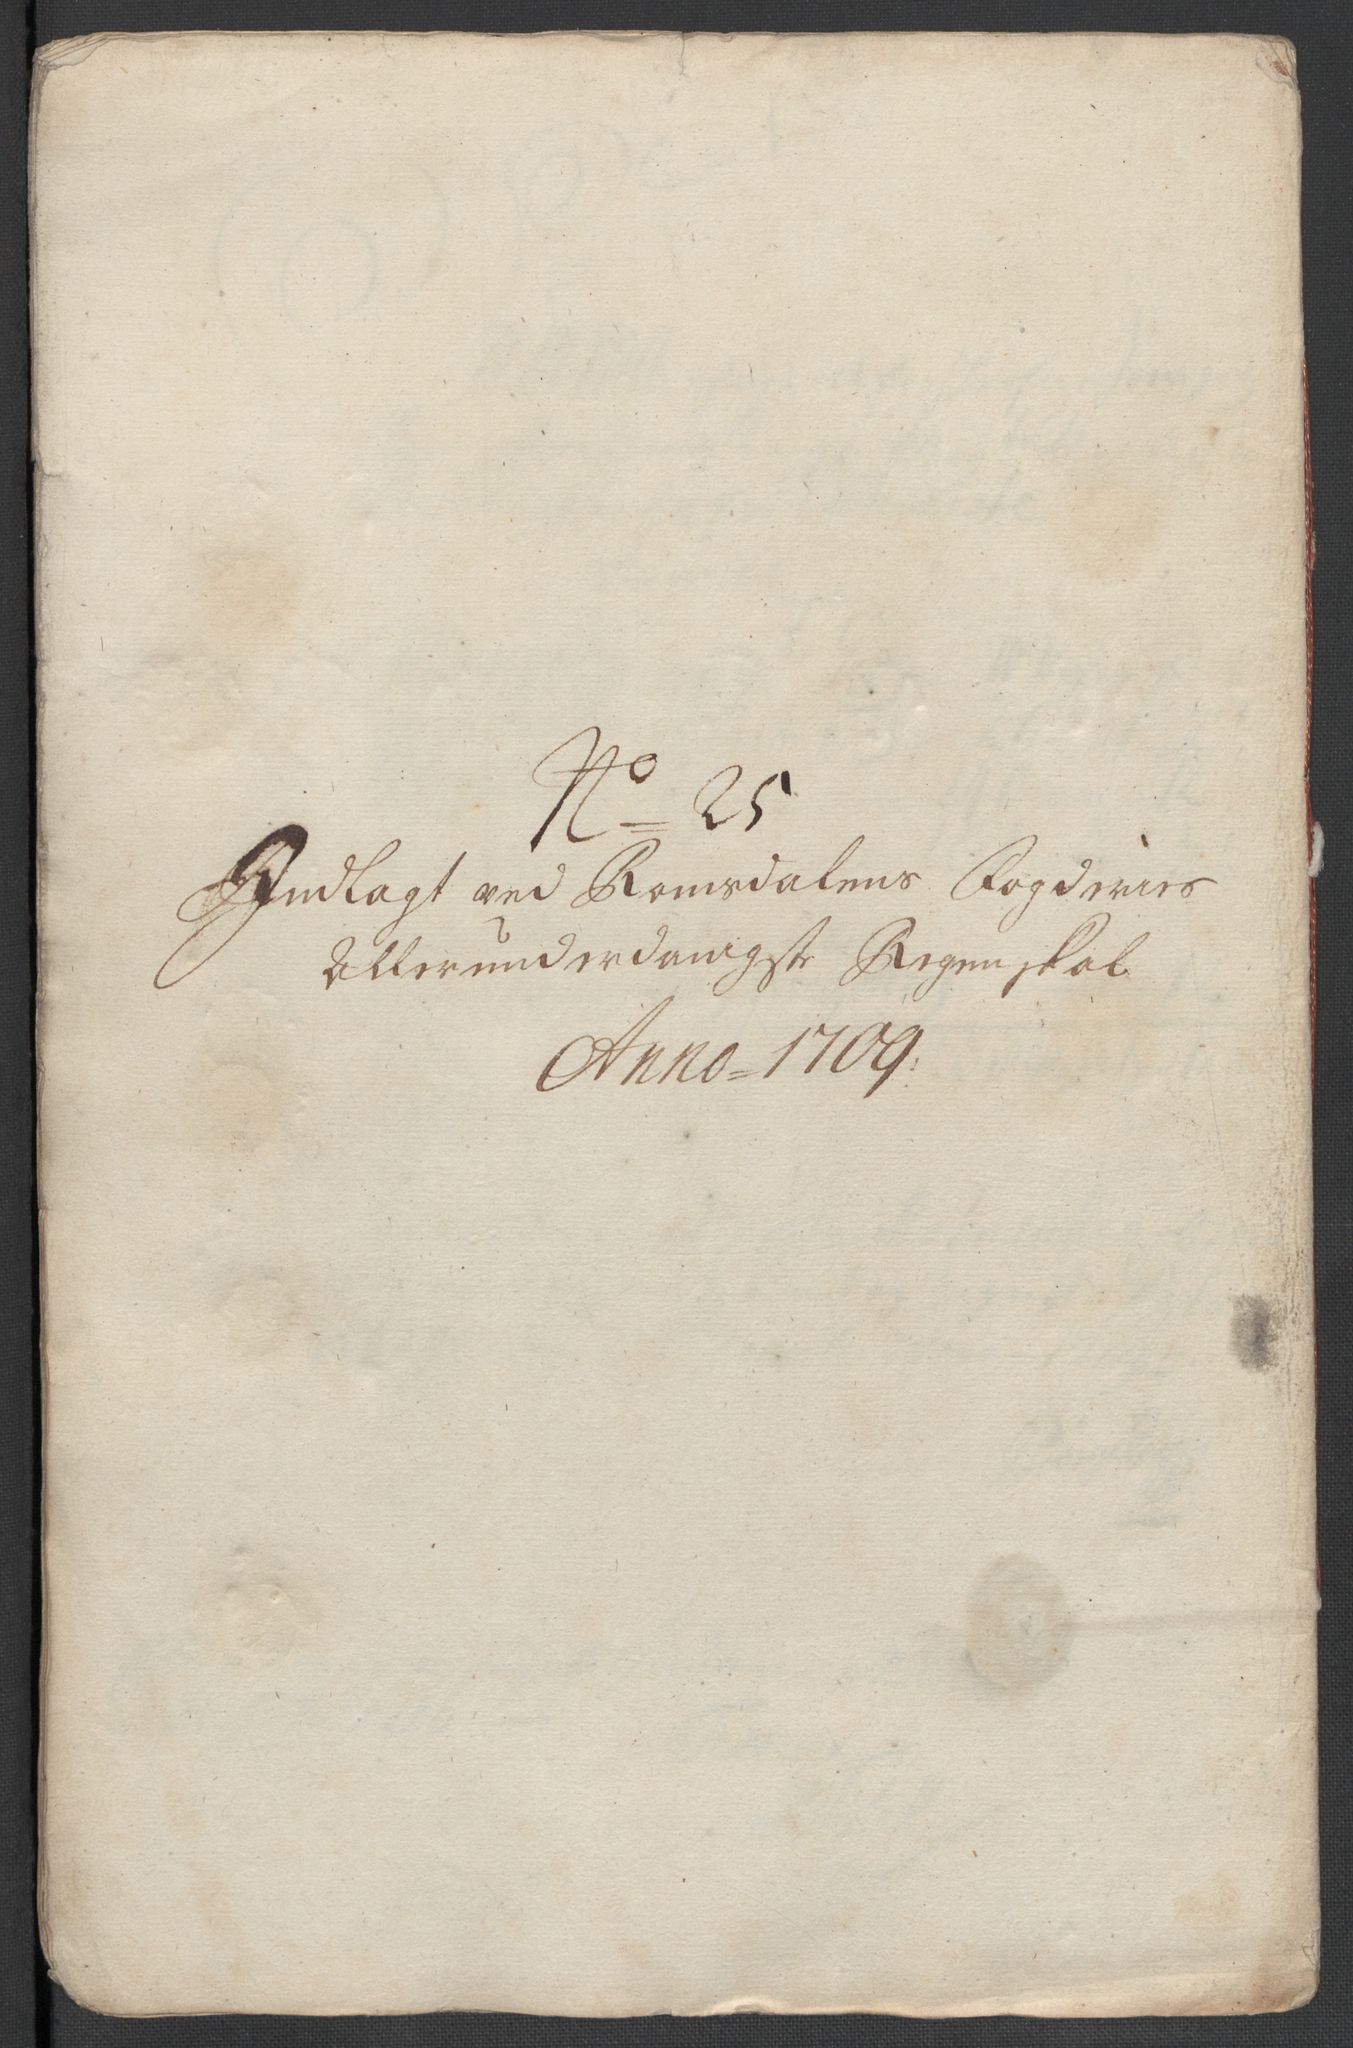 No = 25
Indlagt ved Romsdalens Fogderies
Allerunderdanigste Regenskab
Anno = 1709.